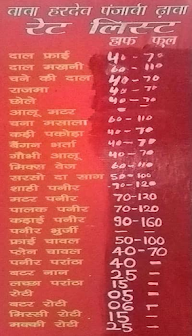 बाबा हरदेव पंजाबी ढ़ाबा
रेट लिस्ट
हाफ फुल
दाल फ्राई 40-70
दाल मखनी 60-110
चने की दाल 40-70
राजमा 40-70
छोले 40-70
आलू मटर
चना मसाला 60-110
कढ़ी पकोड़ा 40-70
बैंगन भर्ता 40-70
गोभी आलू 40-70
मिक्स वेज 60-110
सरसों दा साग 50-100
शाही पनीर 70-120
मटर पनीर 70-120
पालक पनीर 70-120
कढ़ाई पनीर 90-160
पनीर भुर्जी
फ्राई चावल 50-100
प्लेन चावल 40-70
पनीर परांठा 40
बटर नान 25
लच्छा परांठा 15
रोटी 05
बटर रोटी 06
मिस्सी रोटी 15
मक्की रोटी 25